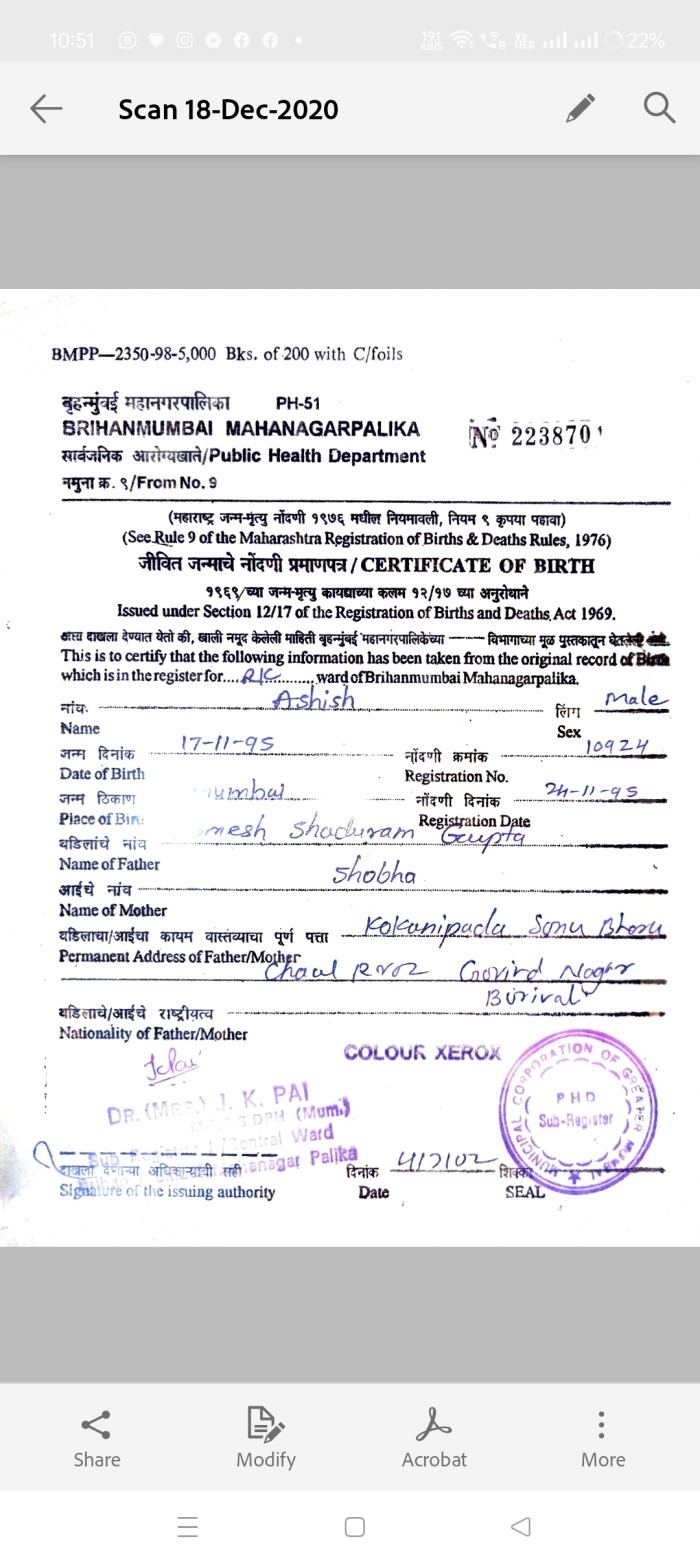 10:51
191 KB/S
22%
Scan 18-Dec-2020
BMPP—2350-98-5,000 Bks. of 200 with C/foils
बृहन्मुंबई महानगरपालिका PH-51
BRIHANMUMBAI MAHANAGARPALIKA
№ 223870
सार्वजनिक आरोग्यखाते/Public Health Department
नमुना क्र. ९/From No. 9
(महाराष्ट्र जन्म-मृत्यु नोंदणी १९७६ मधील नियमावली, नियम ९ कृपया पहावा)
(See Rule 9 of the Maharashtra Registration of Births & Deaths Rules, 1976)
जीवित जन्माचे नोंदणी प्रमाणपत्र / CERTIFICATE OF BIRTH
१९६९/च्या जन्म-मृत्यु कायद्याच्या कलम १२/१७ च्या अनुरोधाने
Issued under Section 12/17 of the Registration of Births and Deaths Act 1969.
असा दाखला देण्यात येतो की, खाली नमूद केलेली माहिती बृहन्मुंबई महानगरपालिकेच्या —— विभागाच्या मूळ पुस्तकातून घेतलेली आहे.
This is to certify that the following information has been taken from the original record of Birth
which is in the register for....R/C.........ward of Brihanmumbai Mahanagarpalika.
नांव Ashish लिंग Male
Name Sex
जन्म दिनांक 17-11-95 नोंदणी क्रमांक 10924
Date of Birth Registration No.
जन्म ठिकाण umbai नोंदणी दिनांक 24-11-95
Place of Bir Registration Date
वडिलांचे नांव mesh Shaduram Gupta
Name of Father
आईचे नांव Shobha
Name of Mother
वडिलाचा/आईचा कायम वास्तव्याचा पूर्ण पत्ता Kokanipada Sonu
Permanent Address of Father/Mother
Chaul Govind Nagar
Borivali
वडिलाचे/आईचे राष्ट्रीयत्व
Nationality of Father/Mother
COLOUR XEROX
DR. (MRS.) J. K. PAI
DPH (Mum.)
Central Ward
Palika
MUNICIPAL CORPORATION OF GREATER MUMBAI
PHD
Sub-Registar
दाखला देणाऱ्या अधिकाऱ्याची सही दिनांक शिक्का
Signature of the issuing authority Date SEAL
Share Modify Acrobat More